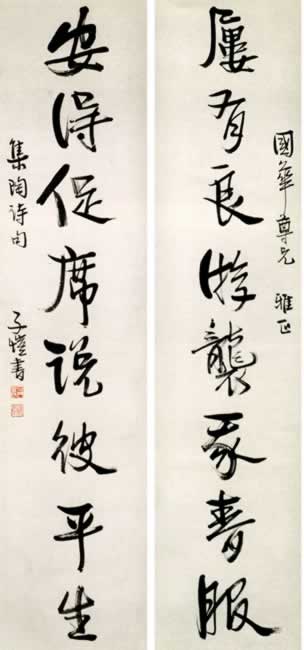 國華尊兄 雅正
屢有良游襲我春服
安得促席说彼平生
集陶诗句 子愷書